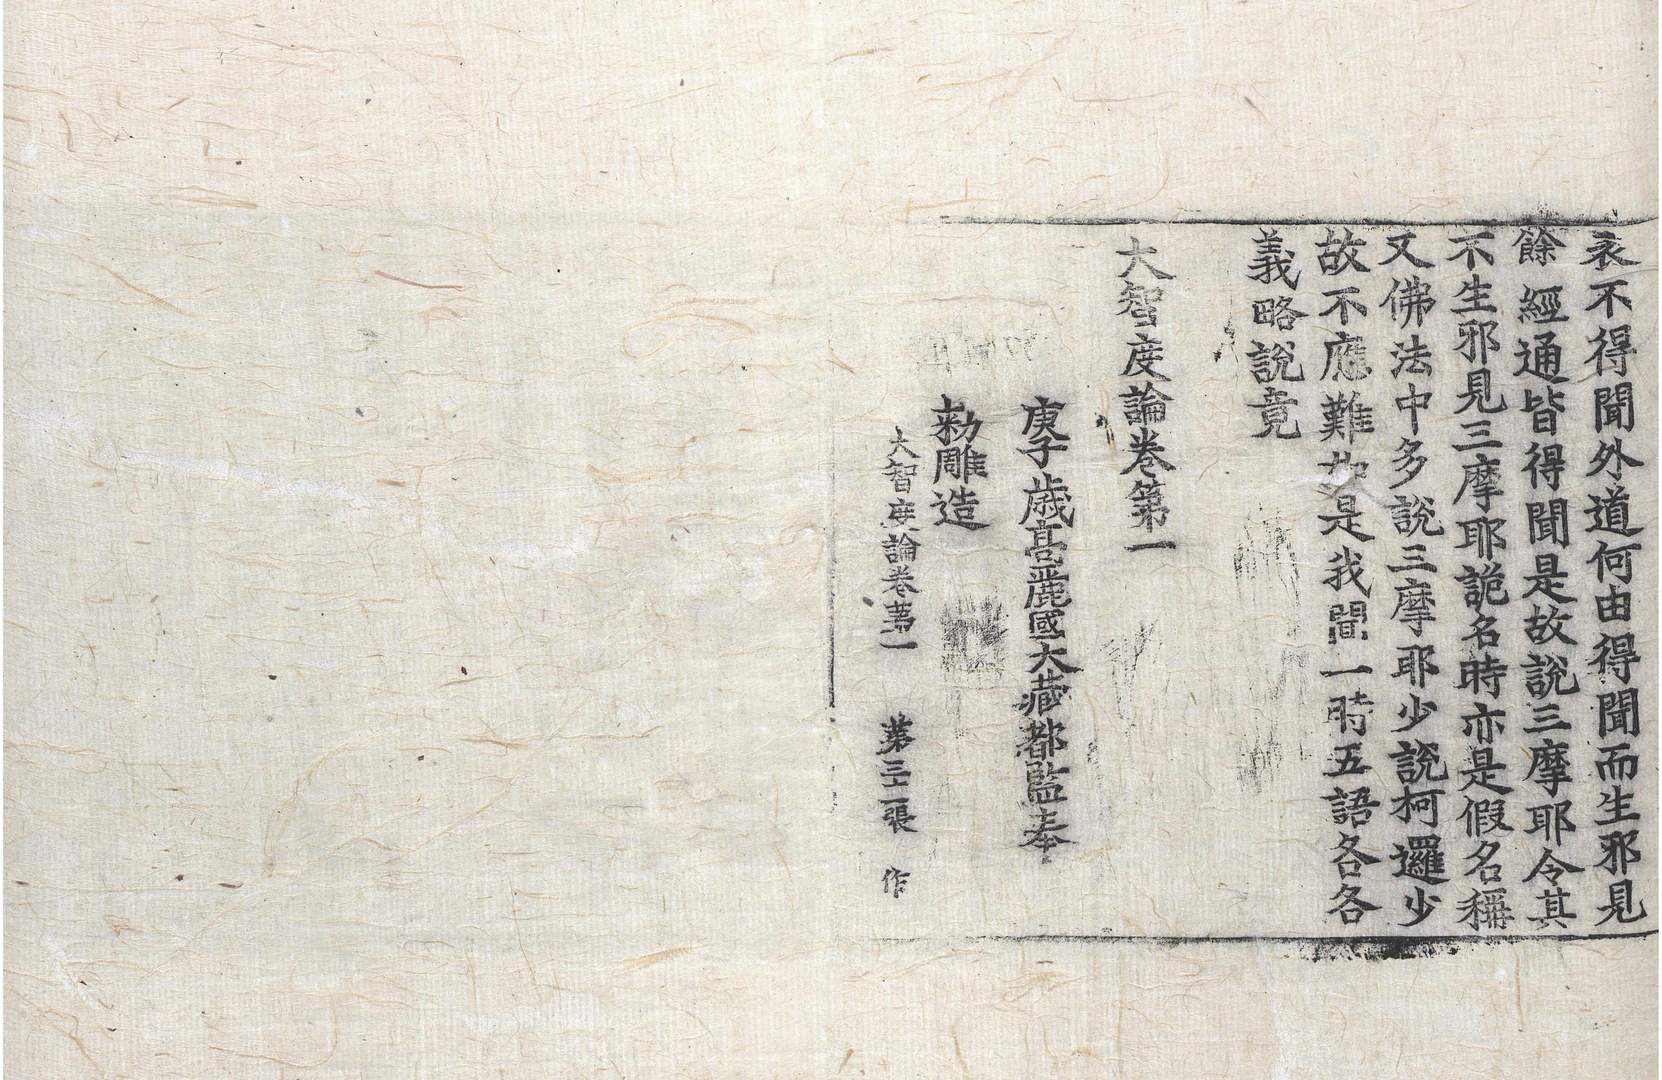 衣不得聞外道何由得聞而生邪見
餘經通皆得聞是故說三摩耶令其
不生邪見三摩耶詭名時亦是假名稱
又佛法中多說三摩耶少說柯邏少
故不應難如是我聞一時五語各各
義略說竟
大智度論卷第一
庚子歲高麗國大藏都監奉
勑雕造
大智度論卷第一 第三二張 作